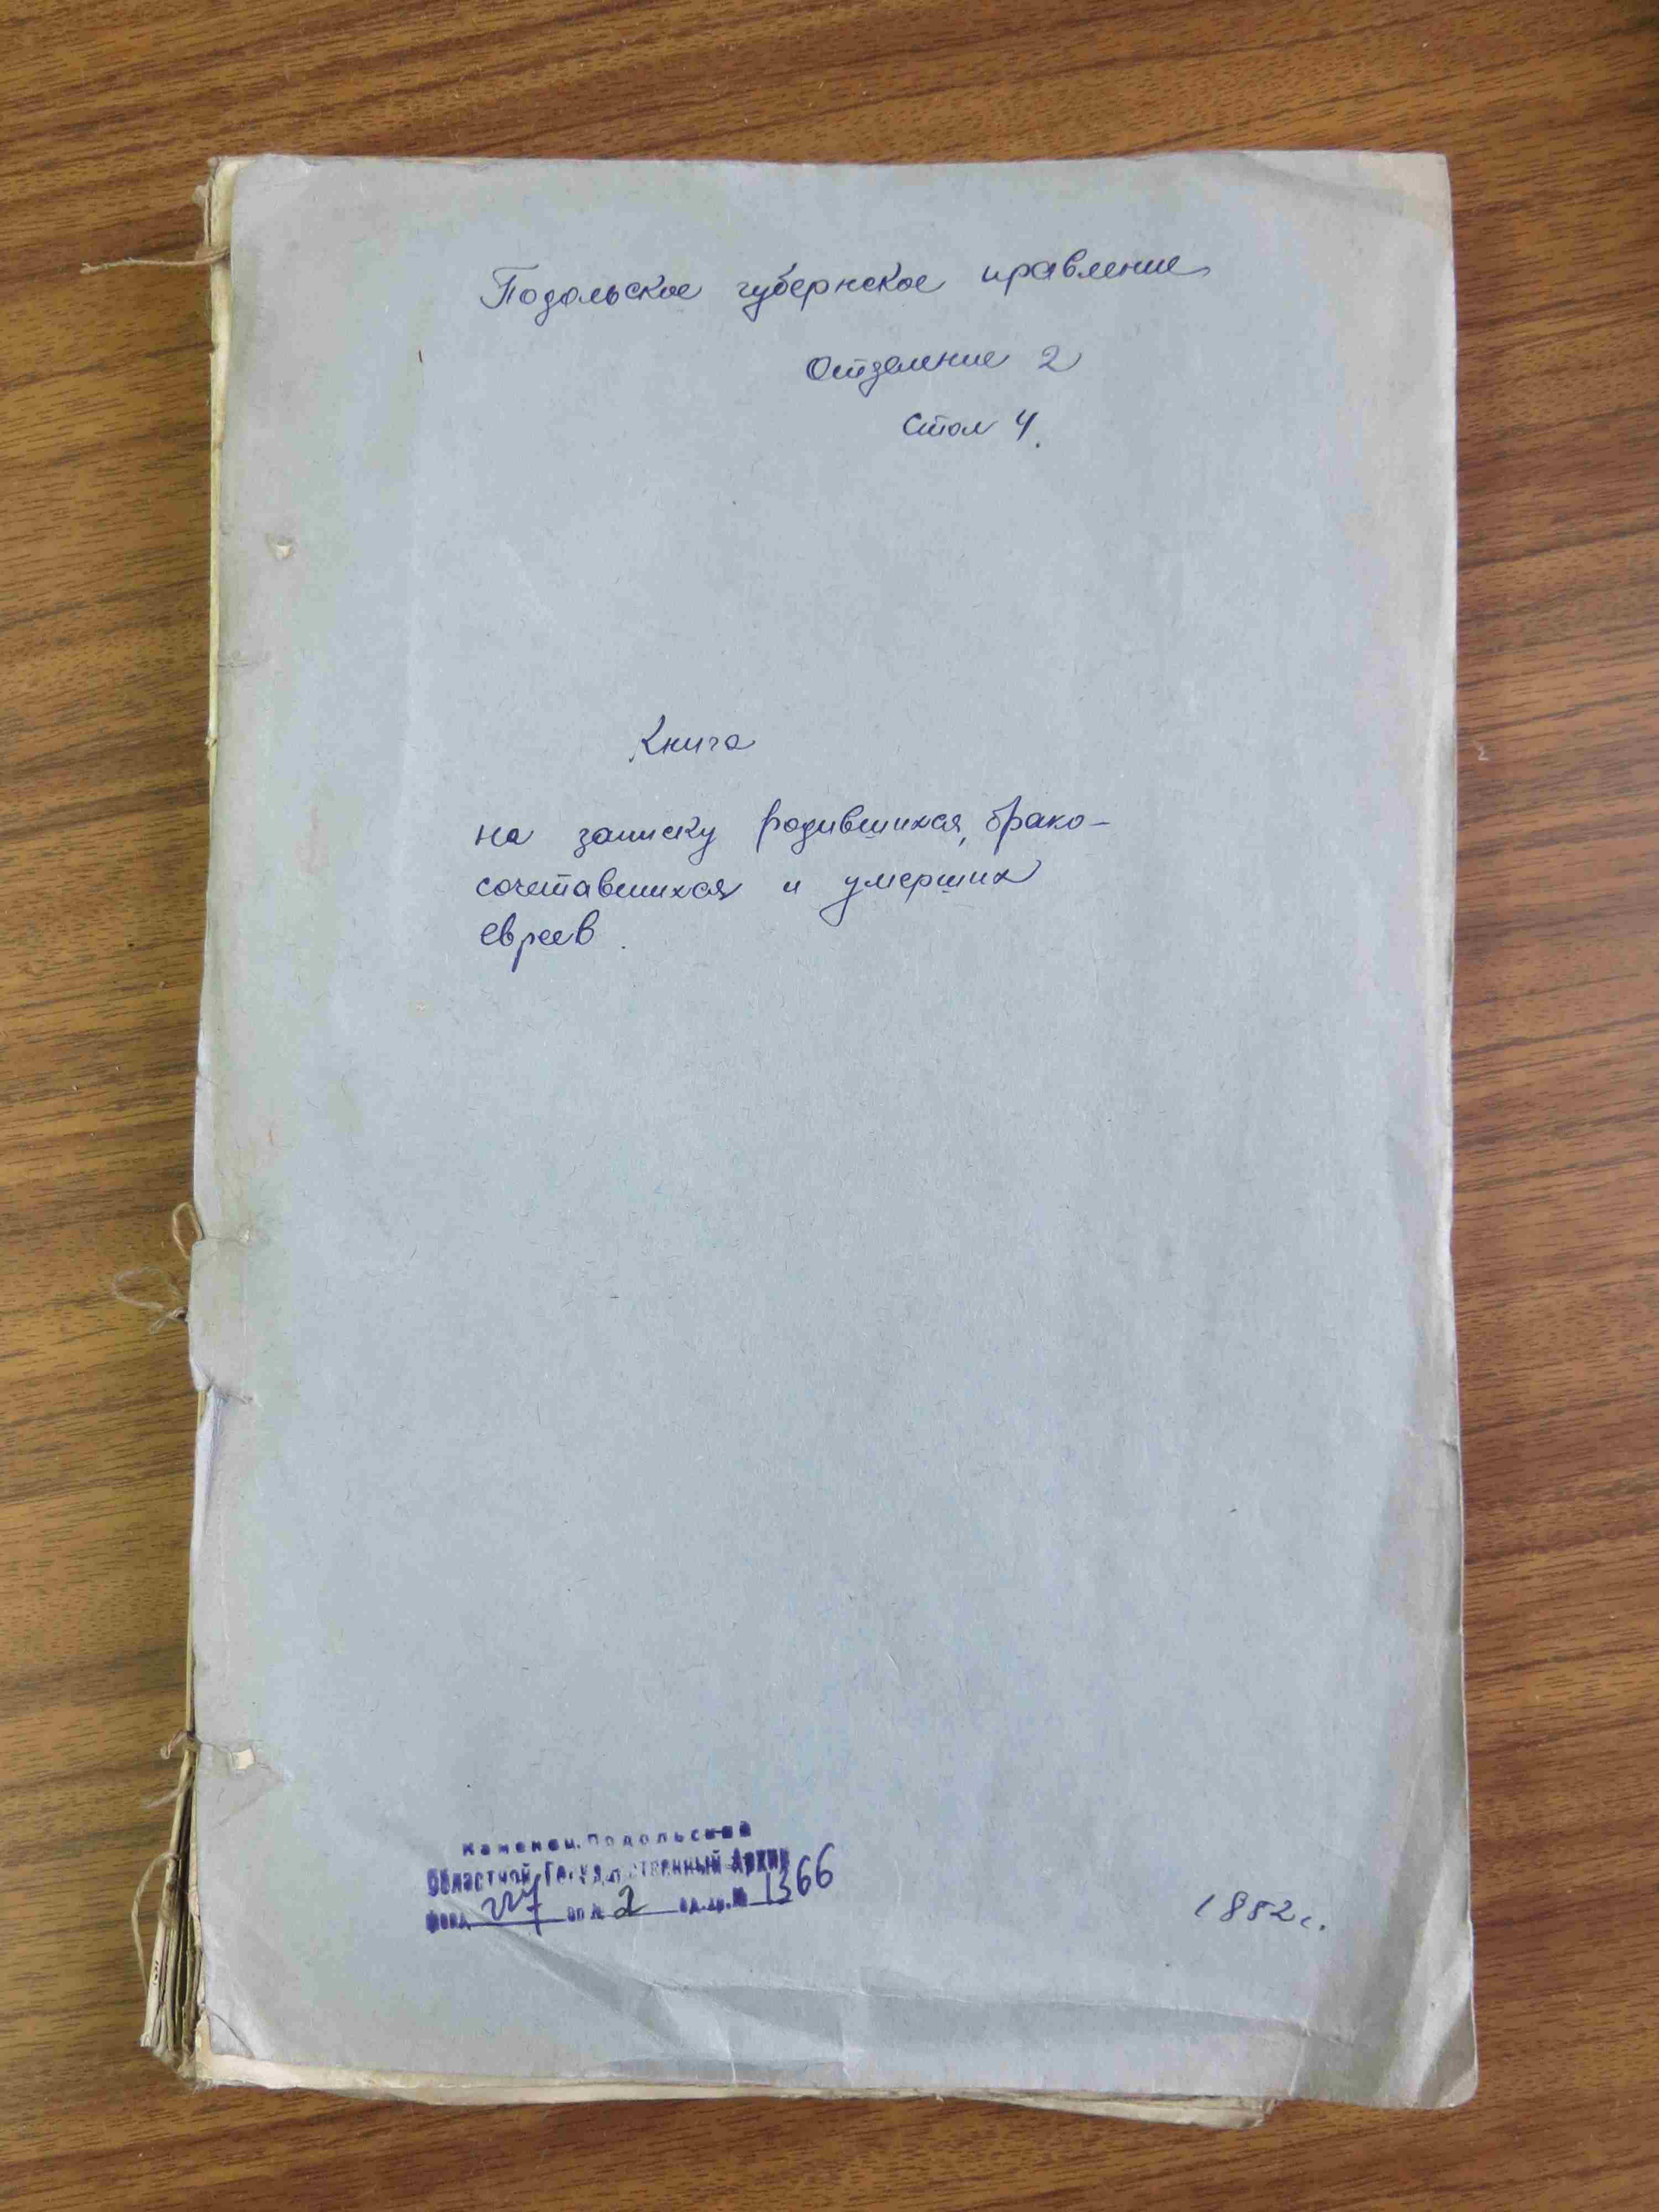 Подольское губернское правление
Отделение 2
Стол 4.
Книга
на записку родившихся, брако-
сочетавшихся и умерших
евреев.
Каменец.Подольский
Областной Государственный Архив
фонд 227 оп № 2 ед.хр.№ 1366
1852 г.